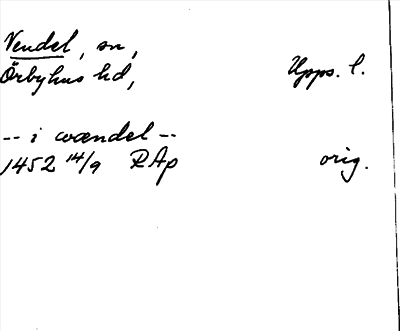 Vendel, sn,
Örbyhus hd, Upps. l.
-- i wændel --
1452 14/9 RAp orig.